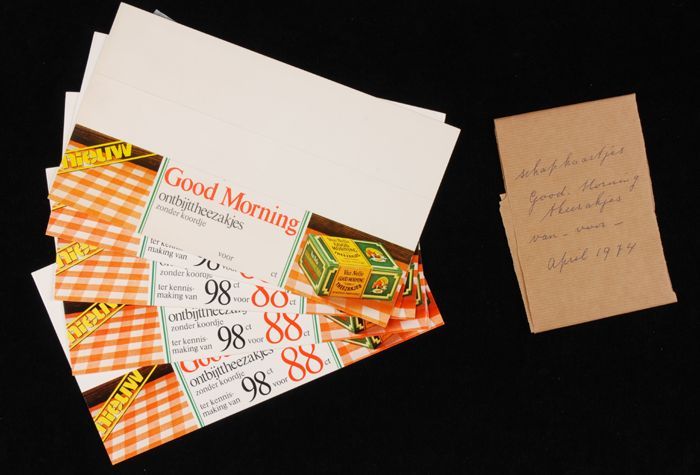 nieuw
Good Morning
ontbijttheezakjes
zonder koordje
voor
ct
Van Nelle
GOOD
MORNING
THEEZAKJES
Van Nelle
GOOD MORNING
THEEZAKJES
nieuw
ter kennis-
making van 98 ct voor 88 ct
zonder koordje
nieuw
ontbijttheezakjes
zonder koordje
ter kennis-
making van 98 ct voor 88 ct
nieuw
Good
ontbijttheezakjes
zonder koordje
ter kennis-
making van 98 ct voor 88 ct
schapkaartjes
Good Morning
theezakjes
van - voor -
April 1974